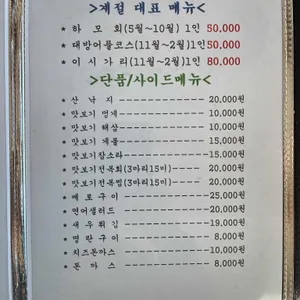 >계절 대표 메뉴<
* 하 모 회(5월~10월) 1인 50,000
* 대방어풀코스(11월~2월)1인50,000
* 이 시 가 리(11월~2월)1인 80,000
>단품/사이드메뉴<
* 산 낙 지--------------20,000원
* 맛보기 멍게------------10,000원
* 맛보기 해삼------------10,000원
* 맛보기 개불------------15,000원
* 맛보기참소라-----------15,000원
* 맛보기전복회(3마리15미)----20,000원
* 맛보기전복찜(3마리15미)----20,000원
* 메 로 구 이------------25,000원
* 연어샐러드-------------20,000원
* 새 우 튀 김------------19,000원
* 명 란 구 이------------8,000원
* 치즈돈까스-------------10,000원
* 돈 까 스--------------8,000원